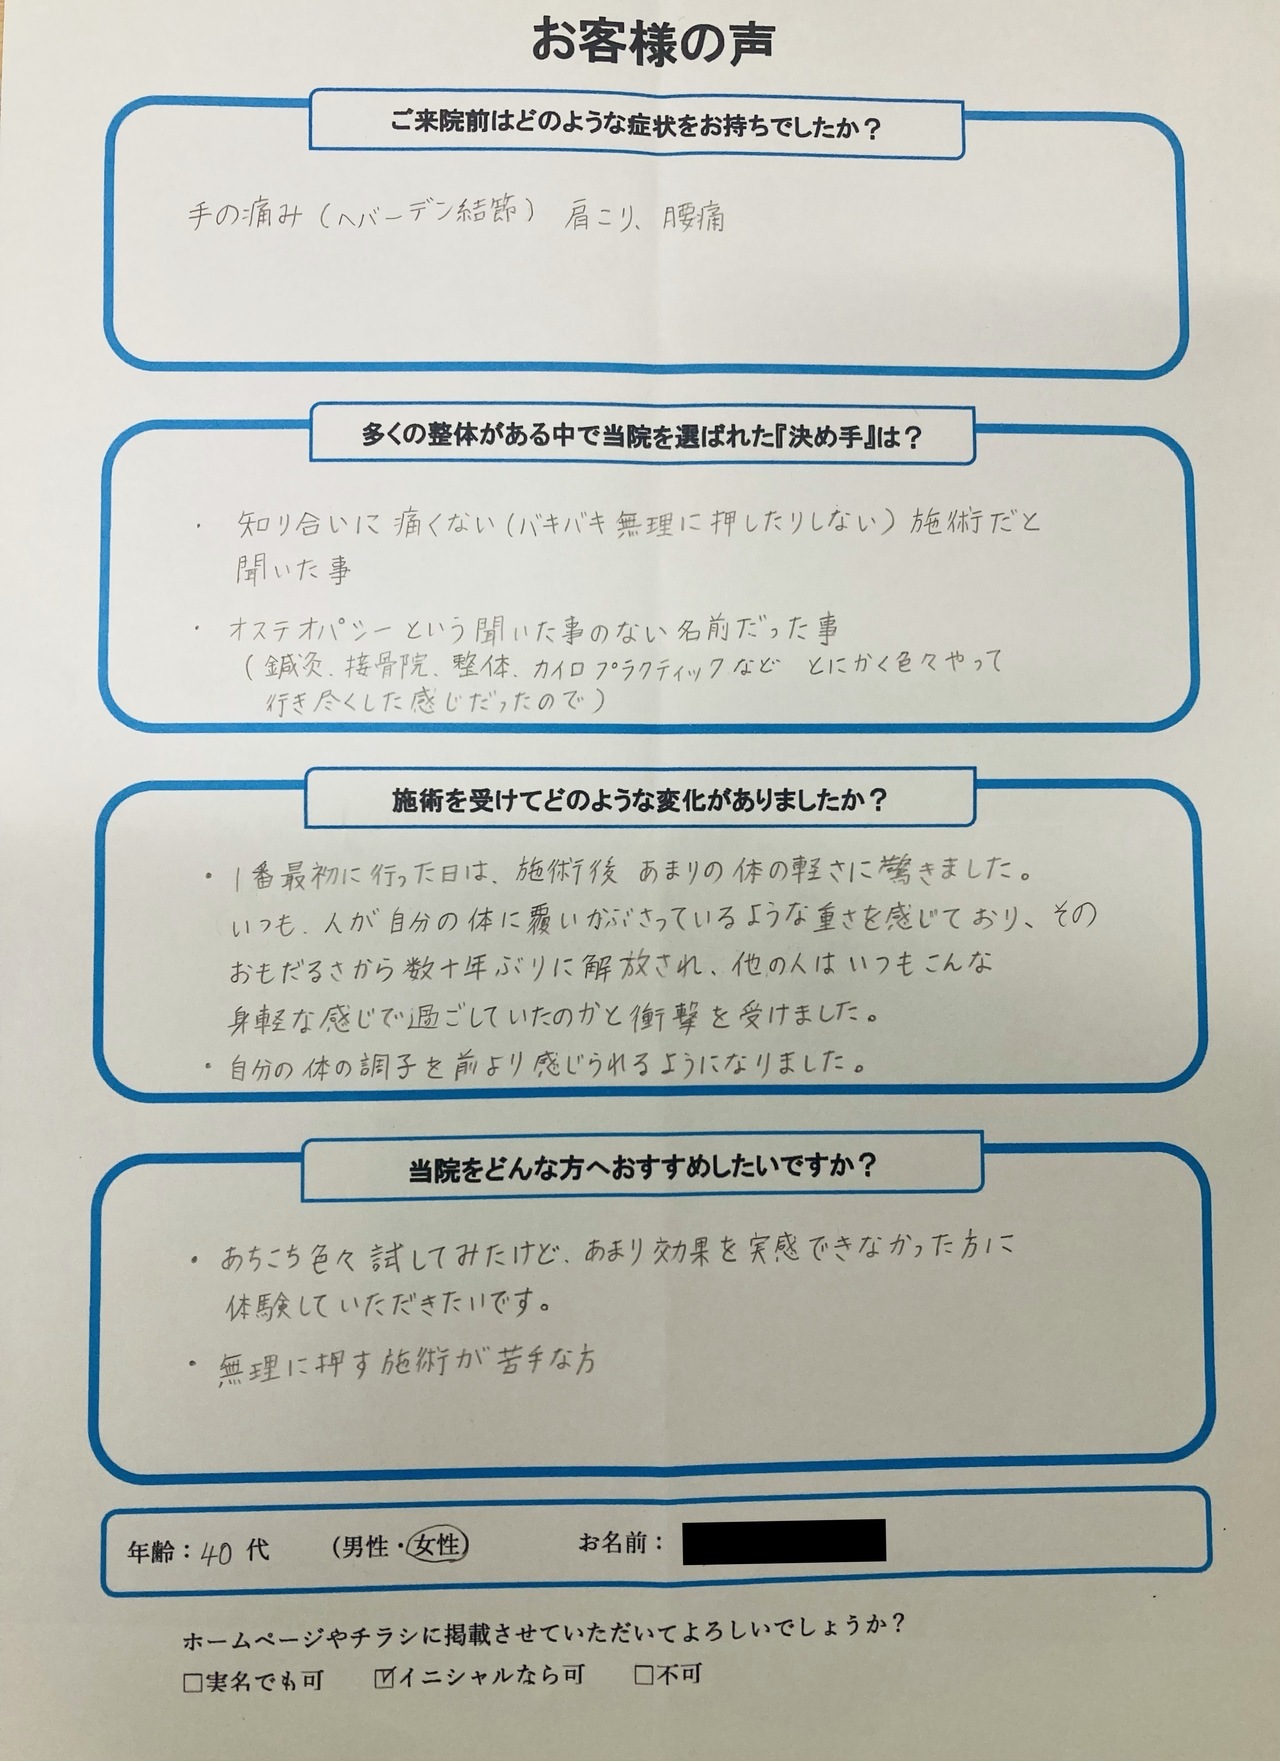 お客様の声
ご来院前はどのような症状をお持ちでしたか？
手の痛み（ヘバーデン結節） 肩こり、腰痛
多くの整体がある中で当院を選ばれた『決め手』は？
・ 知り合いに痛くない（バキバキ無理に押したりしない）施術だと
聞いた事
・ オステオパシーという聞いた事のない名前だった事
（鍼灸、接骨院、整体、カイロプラクティックなど とにかく色々やって
行き尽くした感じだったので）
施術を受けてどのような変化がありましたか？
・1番最初に行った日は、施術後 あまりの体の軽さに驚きました。
いつも、人が自分の体に覆いかぶさっているような重さを感じており、その
おもだるさから数十年ぶりに解放され、他の人はいつもこんな
身軽な感じで過ごしていたのかと衝撃を受けました。
・自分の体の調子を前より感じられるようになりました。
当院をどんな方へおすすめしたいですか？
・ あちこち色々試してみたけど、あまり効果を実感できなかった方に
体験していただきたいです。
・ 無理に押す施術が苦手な方
年齢：40代 （男性・女性） お名前：
ホームページやチラシに掲載させていただいてよろしいでしょうか？
□実名でも可 ☑イニシャルなら可 □不可